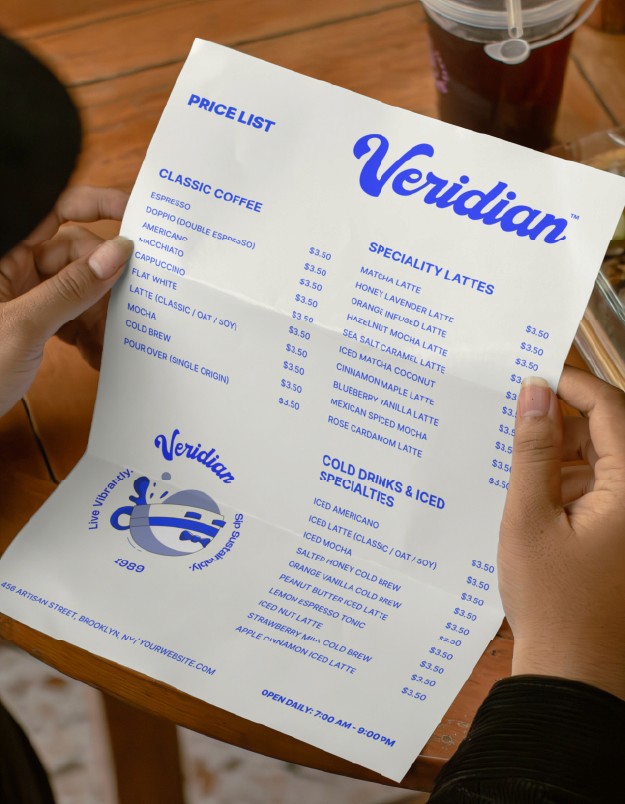 PRICE LIST
Veridian™
CLASSIC COFFEE
ESPRESSO
DOPPIO (DOUBLE ESPRESSO)
AMERICANO
MACCHIATO
CAPPUCCINO
FLAT WHITE
LATTE (CLASSIC / OAT / SOY)
MOCHA
COLD BREW
POUR OVER (SINGLE ORIGIN)
$3.50
$3.50
$3.50
$3.50
$3.50
$3.50
$3.50
$3.50
$3.50
$3.50
SPECIALITY LATTES
MATCHA LATTE
HONEY LAVENDER LATTE
ORANGE INFUSED LATTE
HAZELNUT MOCHA LATTE
SEA SALT CARAMEL LATTE
ICED MATCHA COCONUT
CINNAMON MAPLE LATTE
BLUEBERRY VANILLA LATTE
MEXICAN SPICED MOCHA
ROSE CARDANOM LATTE
$3.50
$3.50
$3.50
COLD DRINKS & ICED
SPECIALTIES
ICED AMERICANO
ICED LATTE (CLASSIC / OAT / SOY)
ICED MOCHA
SALTED HONEY COLD BREW
ORANGE VANILLA COLD BREW
PEANUT BUTTER ICED LATTE
LEMON ESPRESSO TONIC
ICED NUT LATTE
STRAWBERRY MILK COLD BREW
APPLE CINNAMON ICED LATTE
$3.50
$3.50
$3.50
$3.50
$3.50
$3.50
$3.50
$3.50
Veridian
Live Vibrantly.
Sip Sustainably.
1989
456 ARTISAN STREET, BROOKLYN, NY, YOURWEBSITE.COM
OPEN DAILY: 7:00 AM - 9:00 PM